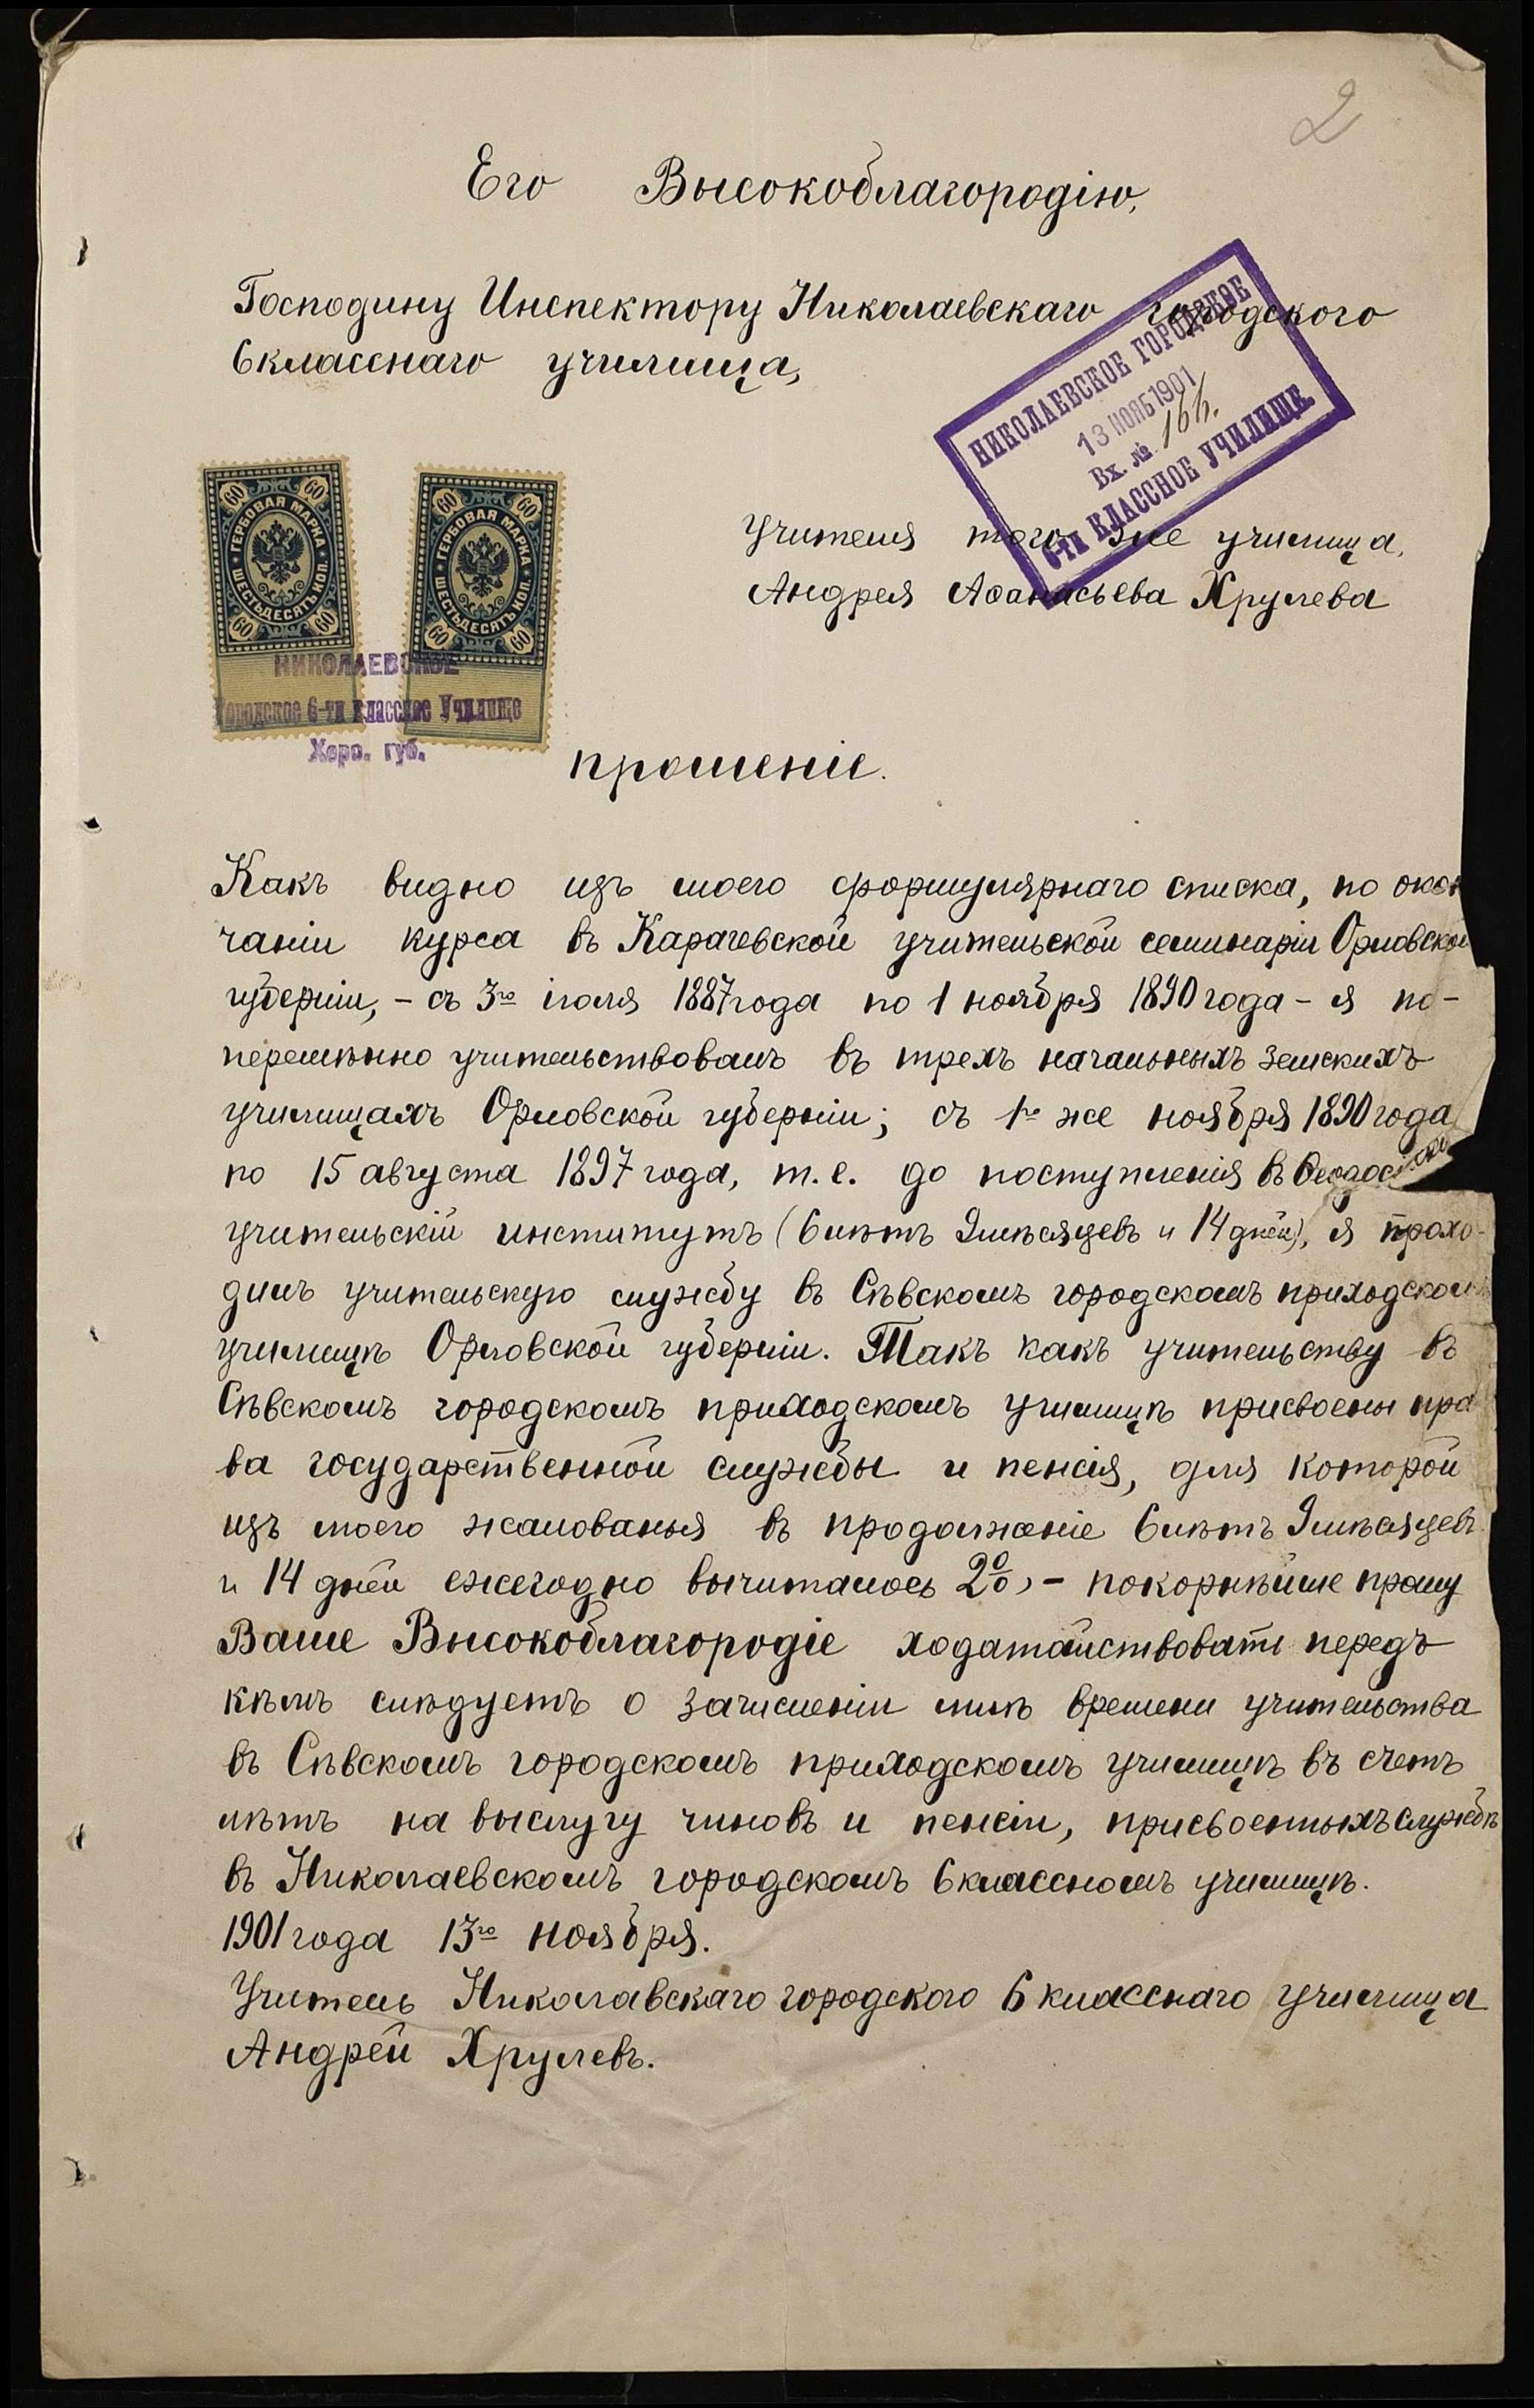 2
Его Высокоблагородію,
Господину Инспектору Николаевскаго городского
6 класснаго училища,
НИКОЛАЕВСКОЕ ГОРОДСКОЕ
13 НОЯБ 1901
Вх. №
6-ти КЛАССНОЕ УЧИЛИЩЕ.
Учителя того же училища,
Андрея Аѳанасьева Хрулева
60 60
ГЕРБОВАЯ МАРКА
ШЕСТЬДЕСЯТЬ КОП.
60 60
60 60
ГЕРБОВАЯ МАРКА
ШЕСТЬДЕСЯТЬ КОП.
60 60
НИКОЛАЕВСКОЕ
Городское 6-ти классное Училище
Херс. губ.
прошеніе.
Какъ видно изъ моего формулярнаго списка, по окон
чаніи курса въ Карачевской учительской семинаріи Орловской
губерніи, - съ 3го іюля 1887 года по 1 ноября 1890 года - я по-
перемѣнно учительствовалъ въ трехъ начальныхъ земскихъ
училищахъ Орловской губерніи; съ 1го же ноября 1890 года
по 15 августа 1897 года, т.е. до поступленія въ Ѳеодосійскій
учительскій институтъ (6 лѣтъ 9 мѣсяцевъ и 14 дней), я прохо-
дилъ учительскую службу въ Сѣвскомъ городскомъ приходском
училищѣ Орловской губерніи. Такъ какъ учительству въ
Сѣвскомъ городскомъ приходскомъ училищѣ присвоены пра
ва государственной службы и пенсія, для которой
изъ моего жалованья въ продолженіе 6 лѣтъ 9 мѣсяцевъ
и 14 дней ежегодно вычиталось 2%, - покорнѣйше прошу
Ваше Высокоблагородіе ходатайствовать передъ
кѣмъ слѣдуетъ о зачисленіи мнѣ времени учительства
въ Сѣвскомъ городскомъ приходскомъ училищѣ въ счетъ
лѣтъ на выслугу чиновъ и пенсіи, присвоенныхъ службѣ
въ Николаевскомъ городскомъ 6 классномъ училищѣ.
1901 года 13го ноября.
Учитель Николавскаго городского 6 класснаго училища
Андрей Хрулевъ.